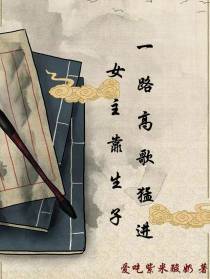 女主靠生子
一路高歌猛进
爱吃紫米酸奶 著